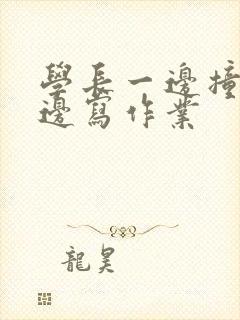 學長一邊撞
邊寫作業
龍昊